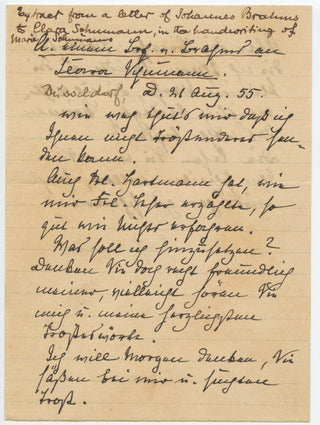 Extract from a letter of Johannes Brahms
to Clara Schumann, in the handwriting of
Marie Schumann
A. einem Brf. v. Brahms an
Clara Schumann.
Düsseldorf, D. 21 Aug. 55.
wie weh thut's mir daß ich
Ihnen nicht Tröstenderes sen-
den kann.
Auch Frl. Hartmann hat, wie
mir Frl. erzählte, so
gut wie Nichts erfahren.
Was soll ich hinzusetzen?
Denken Sie doch recht freundlich
meiner, vielleicht hören Sie
mich u. meine herzlichsten
Trostesworte.
Ich will Morgen denken, Sie
säßen bei mir u. suchten
Trost.